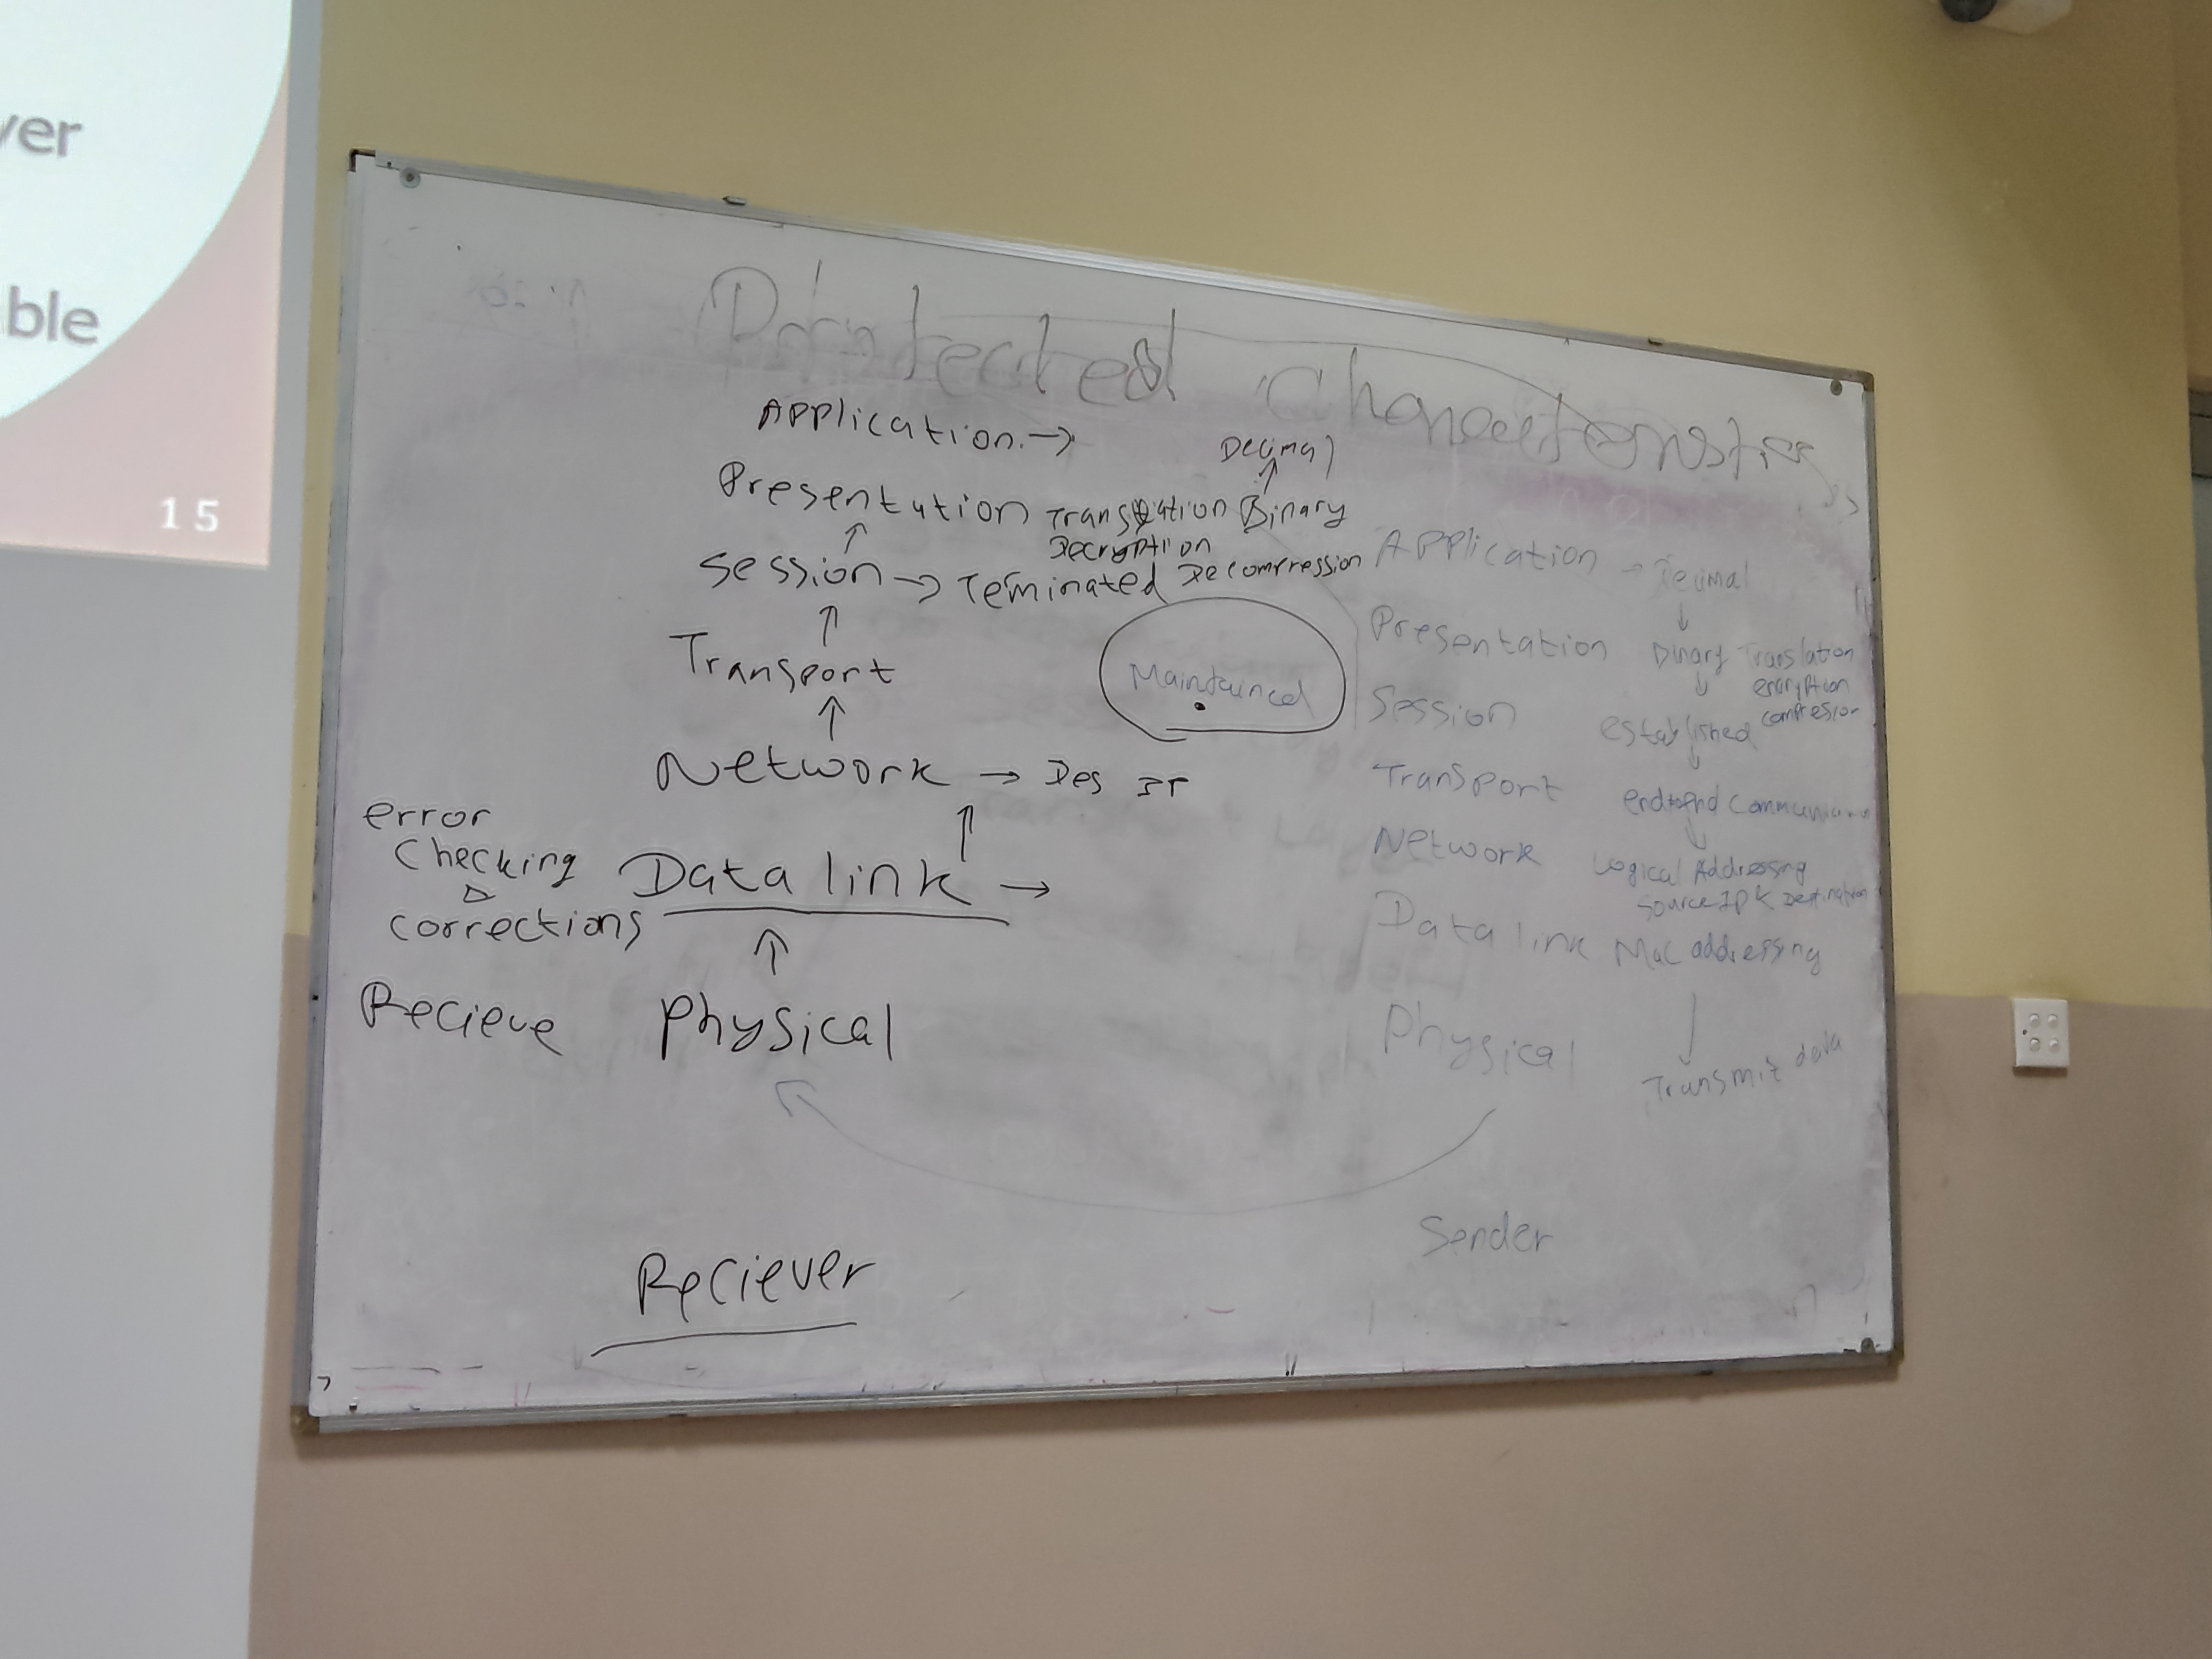 yer
ble
15
Protected characteristics
Application. →
Decimal
↑
Presentation Translation Binary
↑
Decryption
Session → Terminated Decompression
↑
Transport
Maintained
↑
Network → Des IP
↑
error
checking
&
corrections
Data link →
↑
Recieve Physical
Reciever
Application → Decimal
↓
Presentation Binary Translation
↓
encryption
compression
Session established
↓
Transport end to end communication
↓
Network Logical Addressing
Source IP & Destination
Data link Mac addressing
↓
Physical Transmit data
Sender